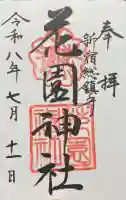 奉拝
新宿総鎮守
花園神社
令和八年七月十一日